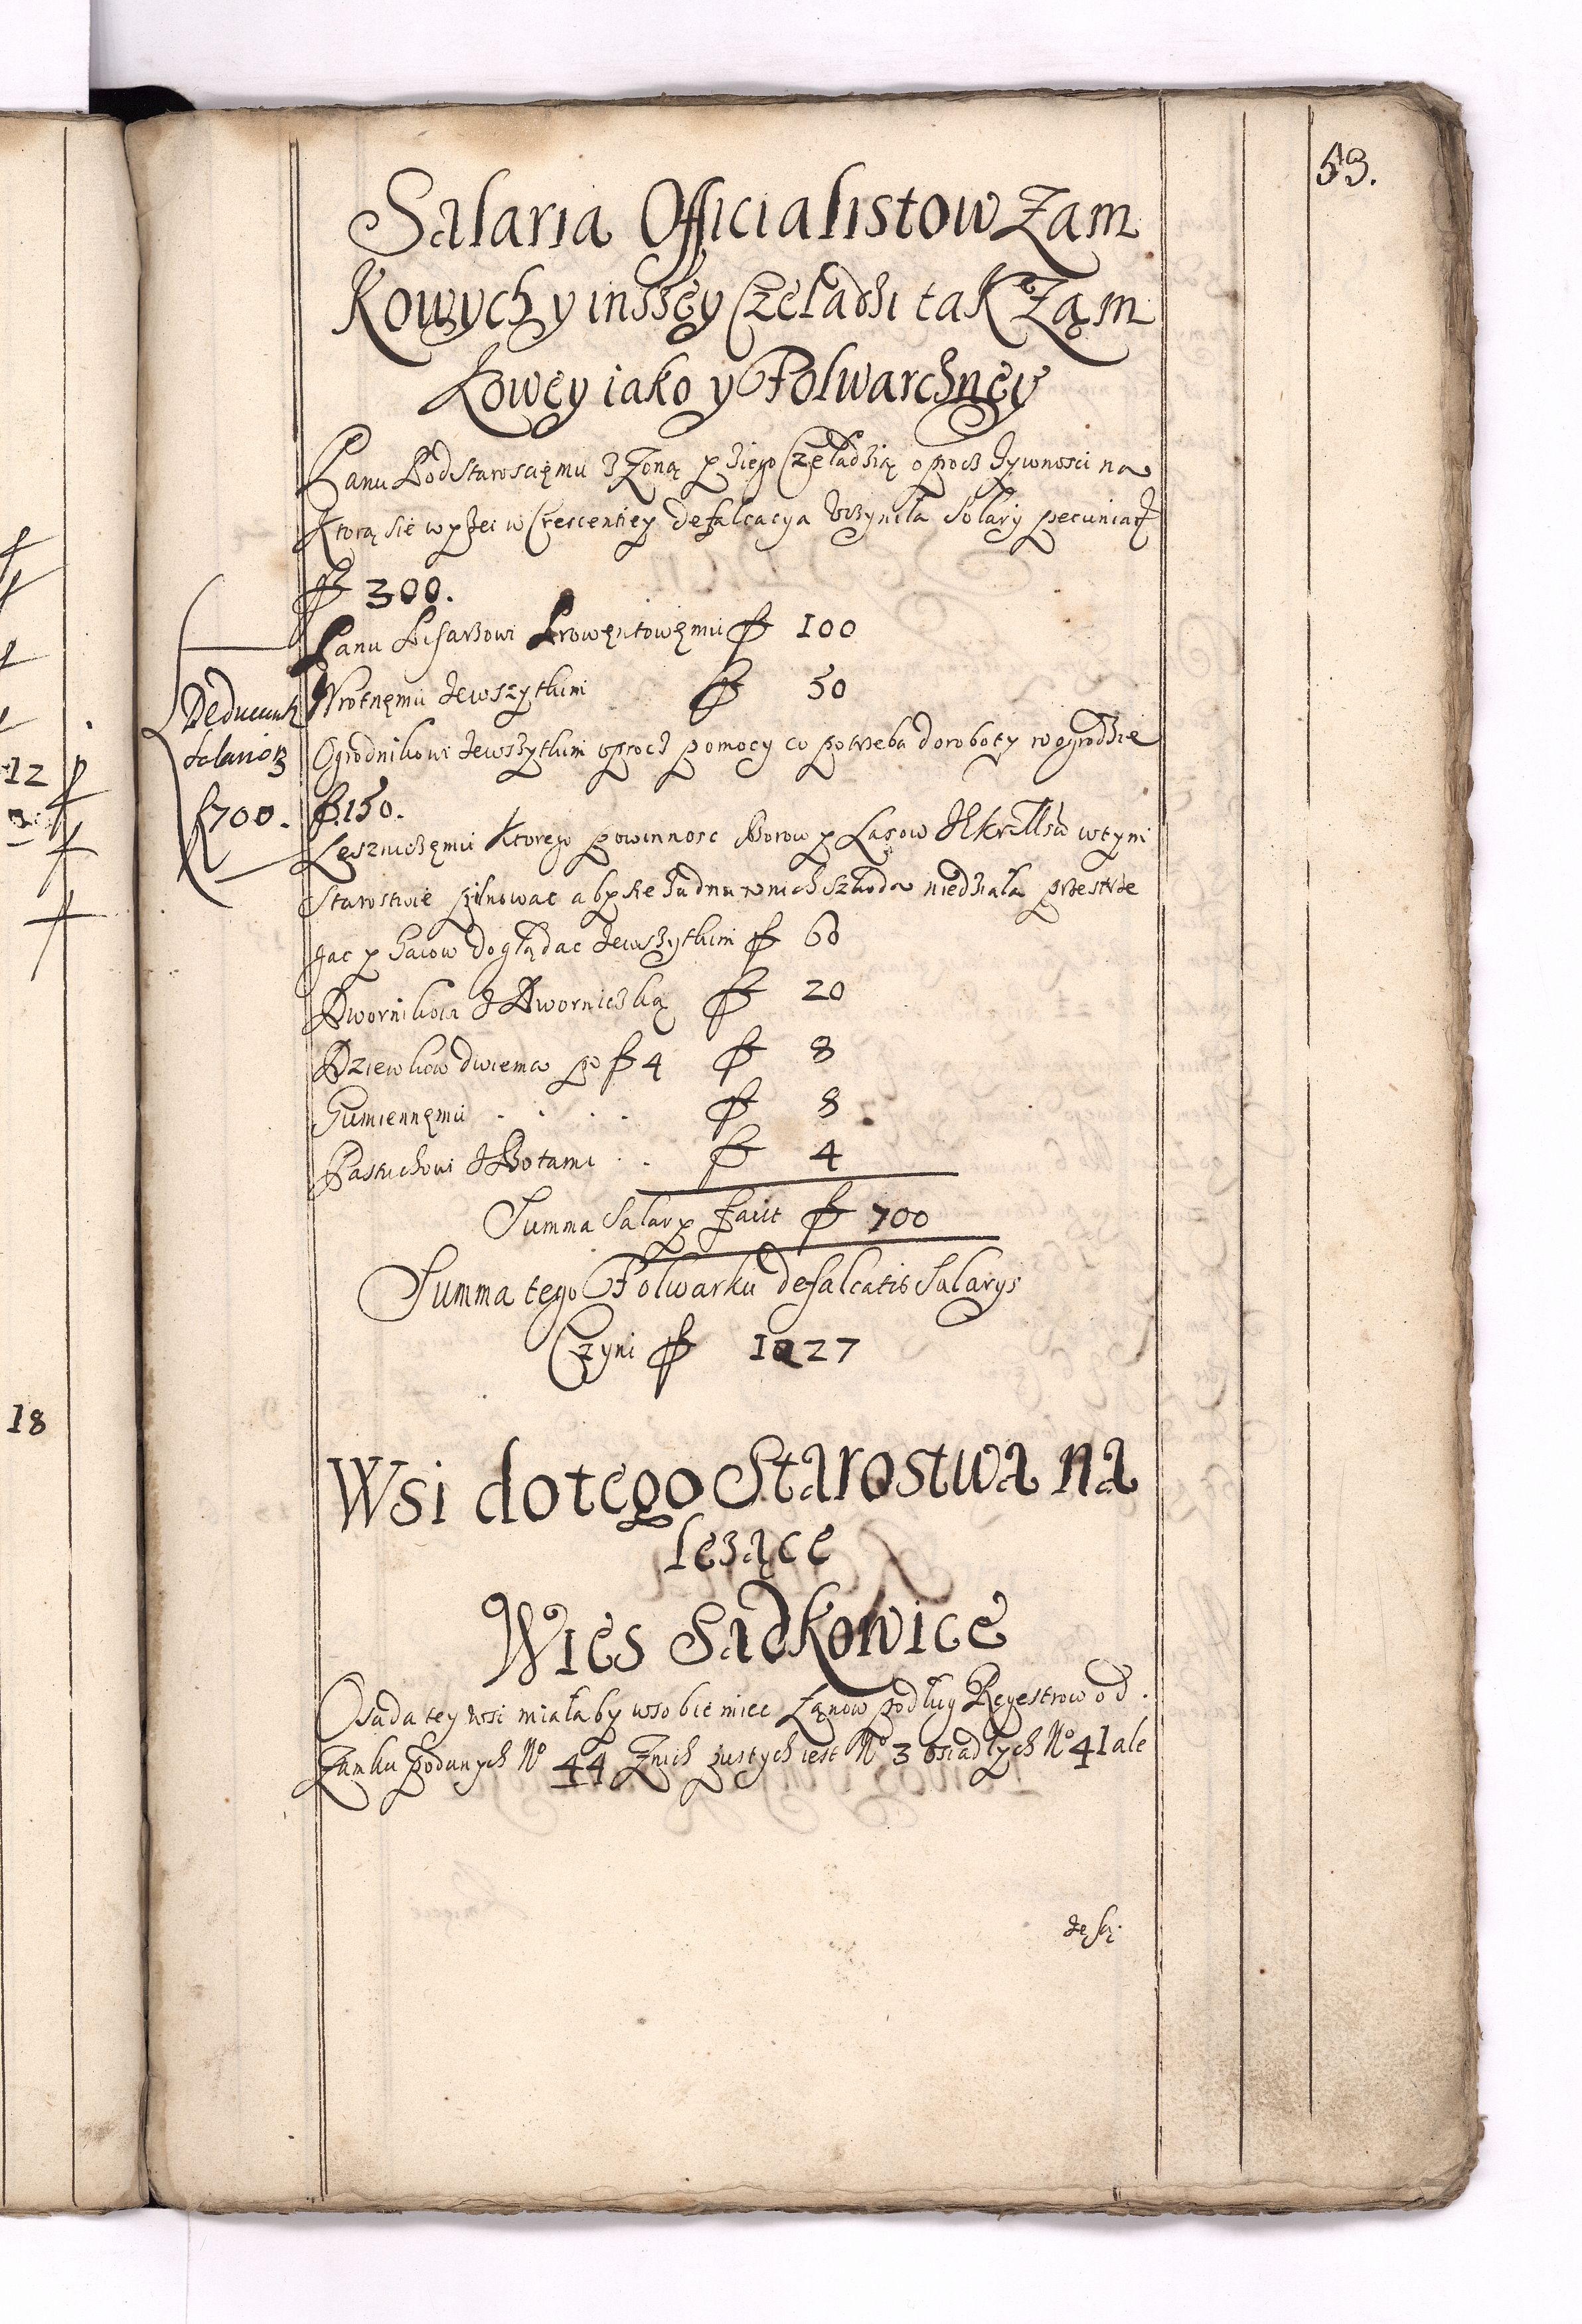 53.
Salaria Officialistow Zam
kowych y inszęy Czeladzi tak Zam
kowęy iako y Folwarchnęy
Panu Podstaroscięmu z Zoną y ziego Czeladzią oprocz zywnosci na
Ktorą sie wyzei w Crescentiey defalcacya vczyniła Solary pecuniar
fl 300.
Panu Pisarzowi Prowęntowęmu fl 100
Wrotnęmu zewszytkim fl 50
Ogrodnikowi zewszytkim oprocz pomocy co potrzeba do roboty w ogrodzie
fl 150.
Lesniczęmu Ktorego powinnosc Borow y Lasow JKrMsci wtym
Starostwie pilnowac aby sie zadna w nich szkoda niedziała przestrze
gac y Gaiow doglądac zewszytkim fl 60
Dwornikowi z Dworniczką fl 20
Dziewkom dwiema po fl 4 fl 8
Gumiennęmu . . . . fl 8
Pastuchowi z Botami . . fl 4
Summa Salary facit fl 700
Summa tego Folwarku defalcatis Salarys
Czyni fl 1027
Deducunt
salarior
f 700.
Wsi do tego Starostwa na
lezące
Wies Sadkowice
Osada tey wsi miałaby wsobie miec Łanow podług Regestrow od
Zamku podanych No 44 Znich pustych iest No 3 osiadłych No 41 ale
zę są.
12
18